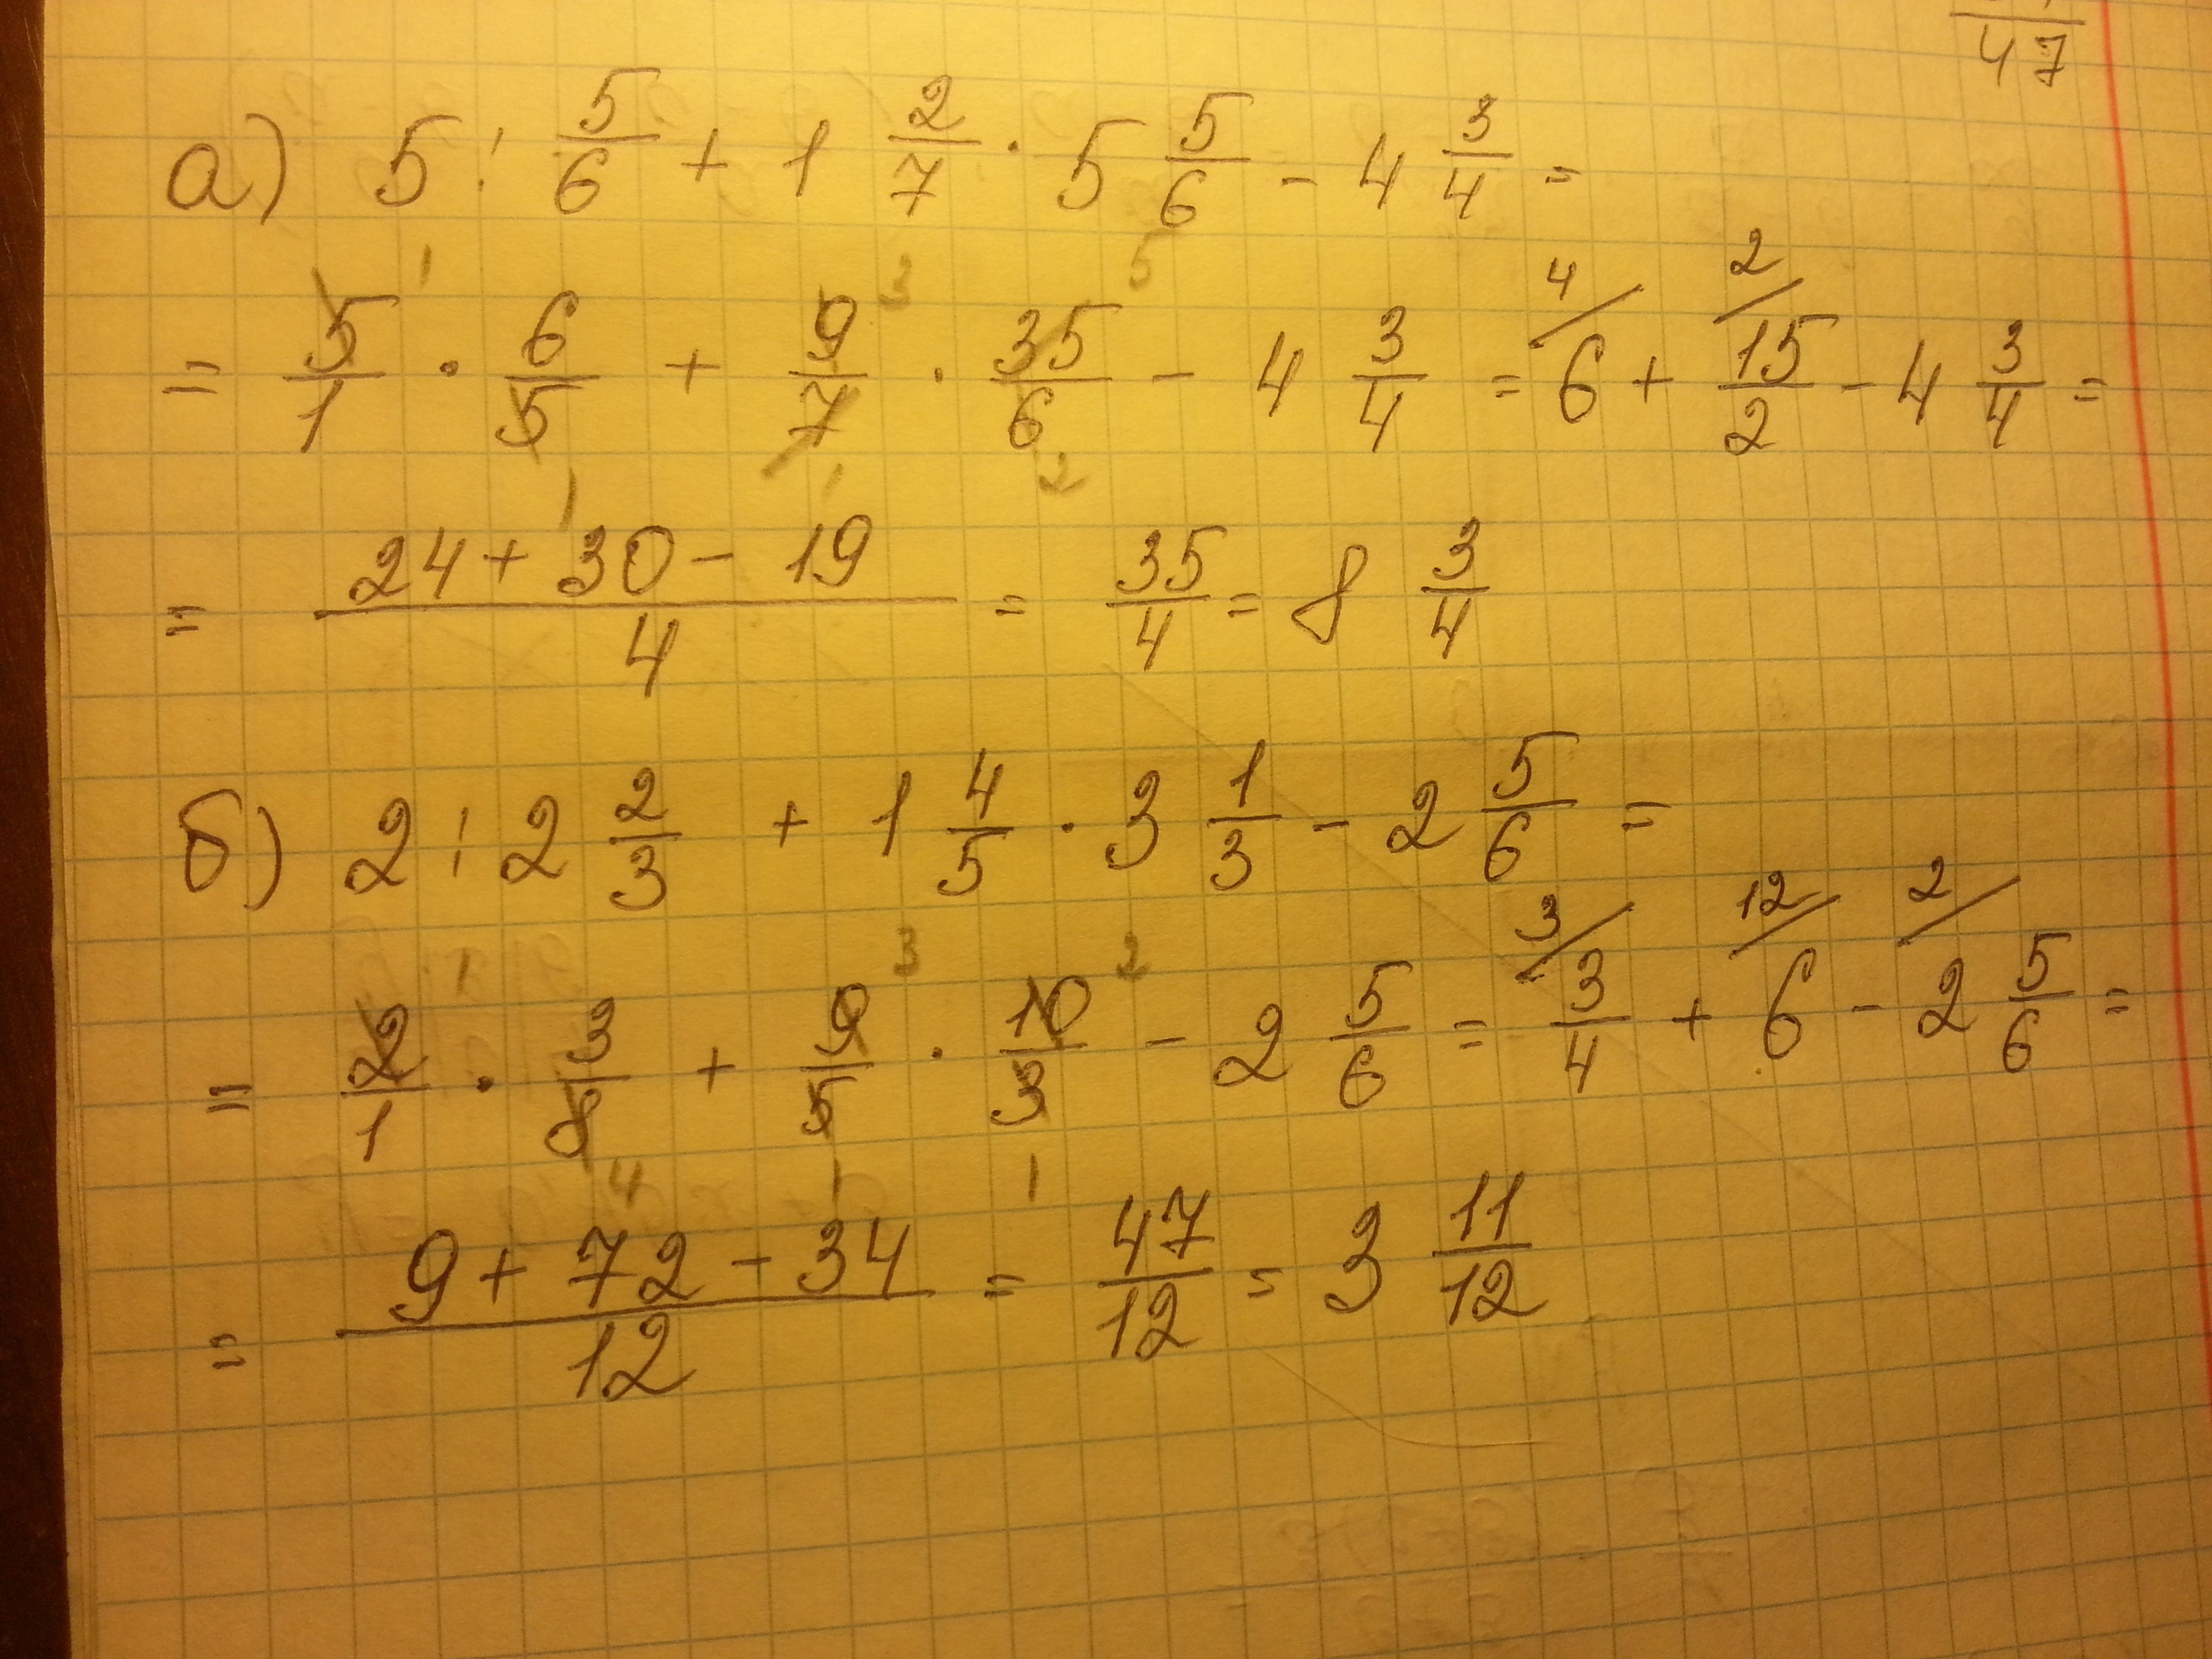 47
а) 5 : 5/6 + 1 2/7 · 5 5/6 - 4 3/4 =
= 5/1 · 6/5 + 9/7 · 35/6 - 4 3/4 = 6 + 15/2 - 4 3/4 =
= (24 + 30 - 19)/4 = 35/4 = 8 3/4
б) 2 : 2 2/3 + 1 4/5 · 3 1/3 - 2 5/6 =
= 2/1 · 3/8 + 9/5 · 10/3 - 2 5/6 = 3/4 + 6 - 2 5/6 =
= (9 + 72 - 34)/12 = 47/12 = 3 11/12